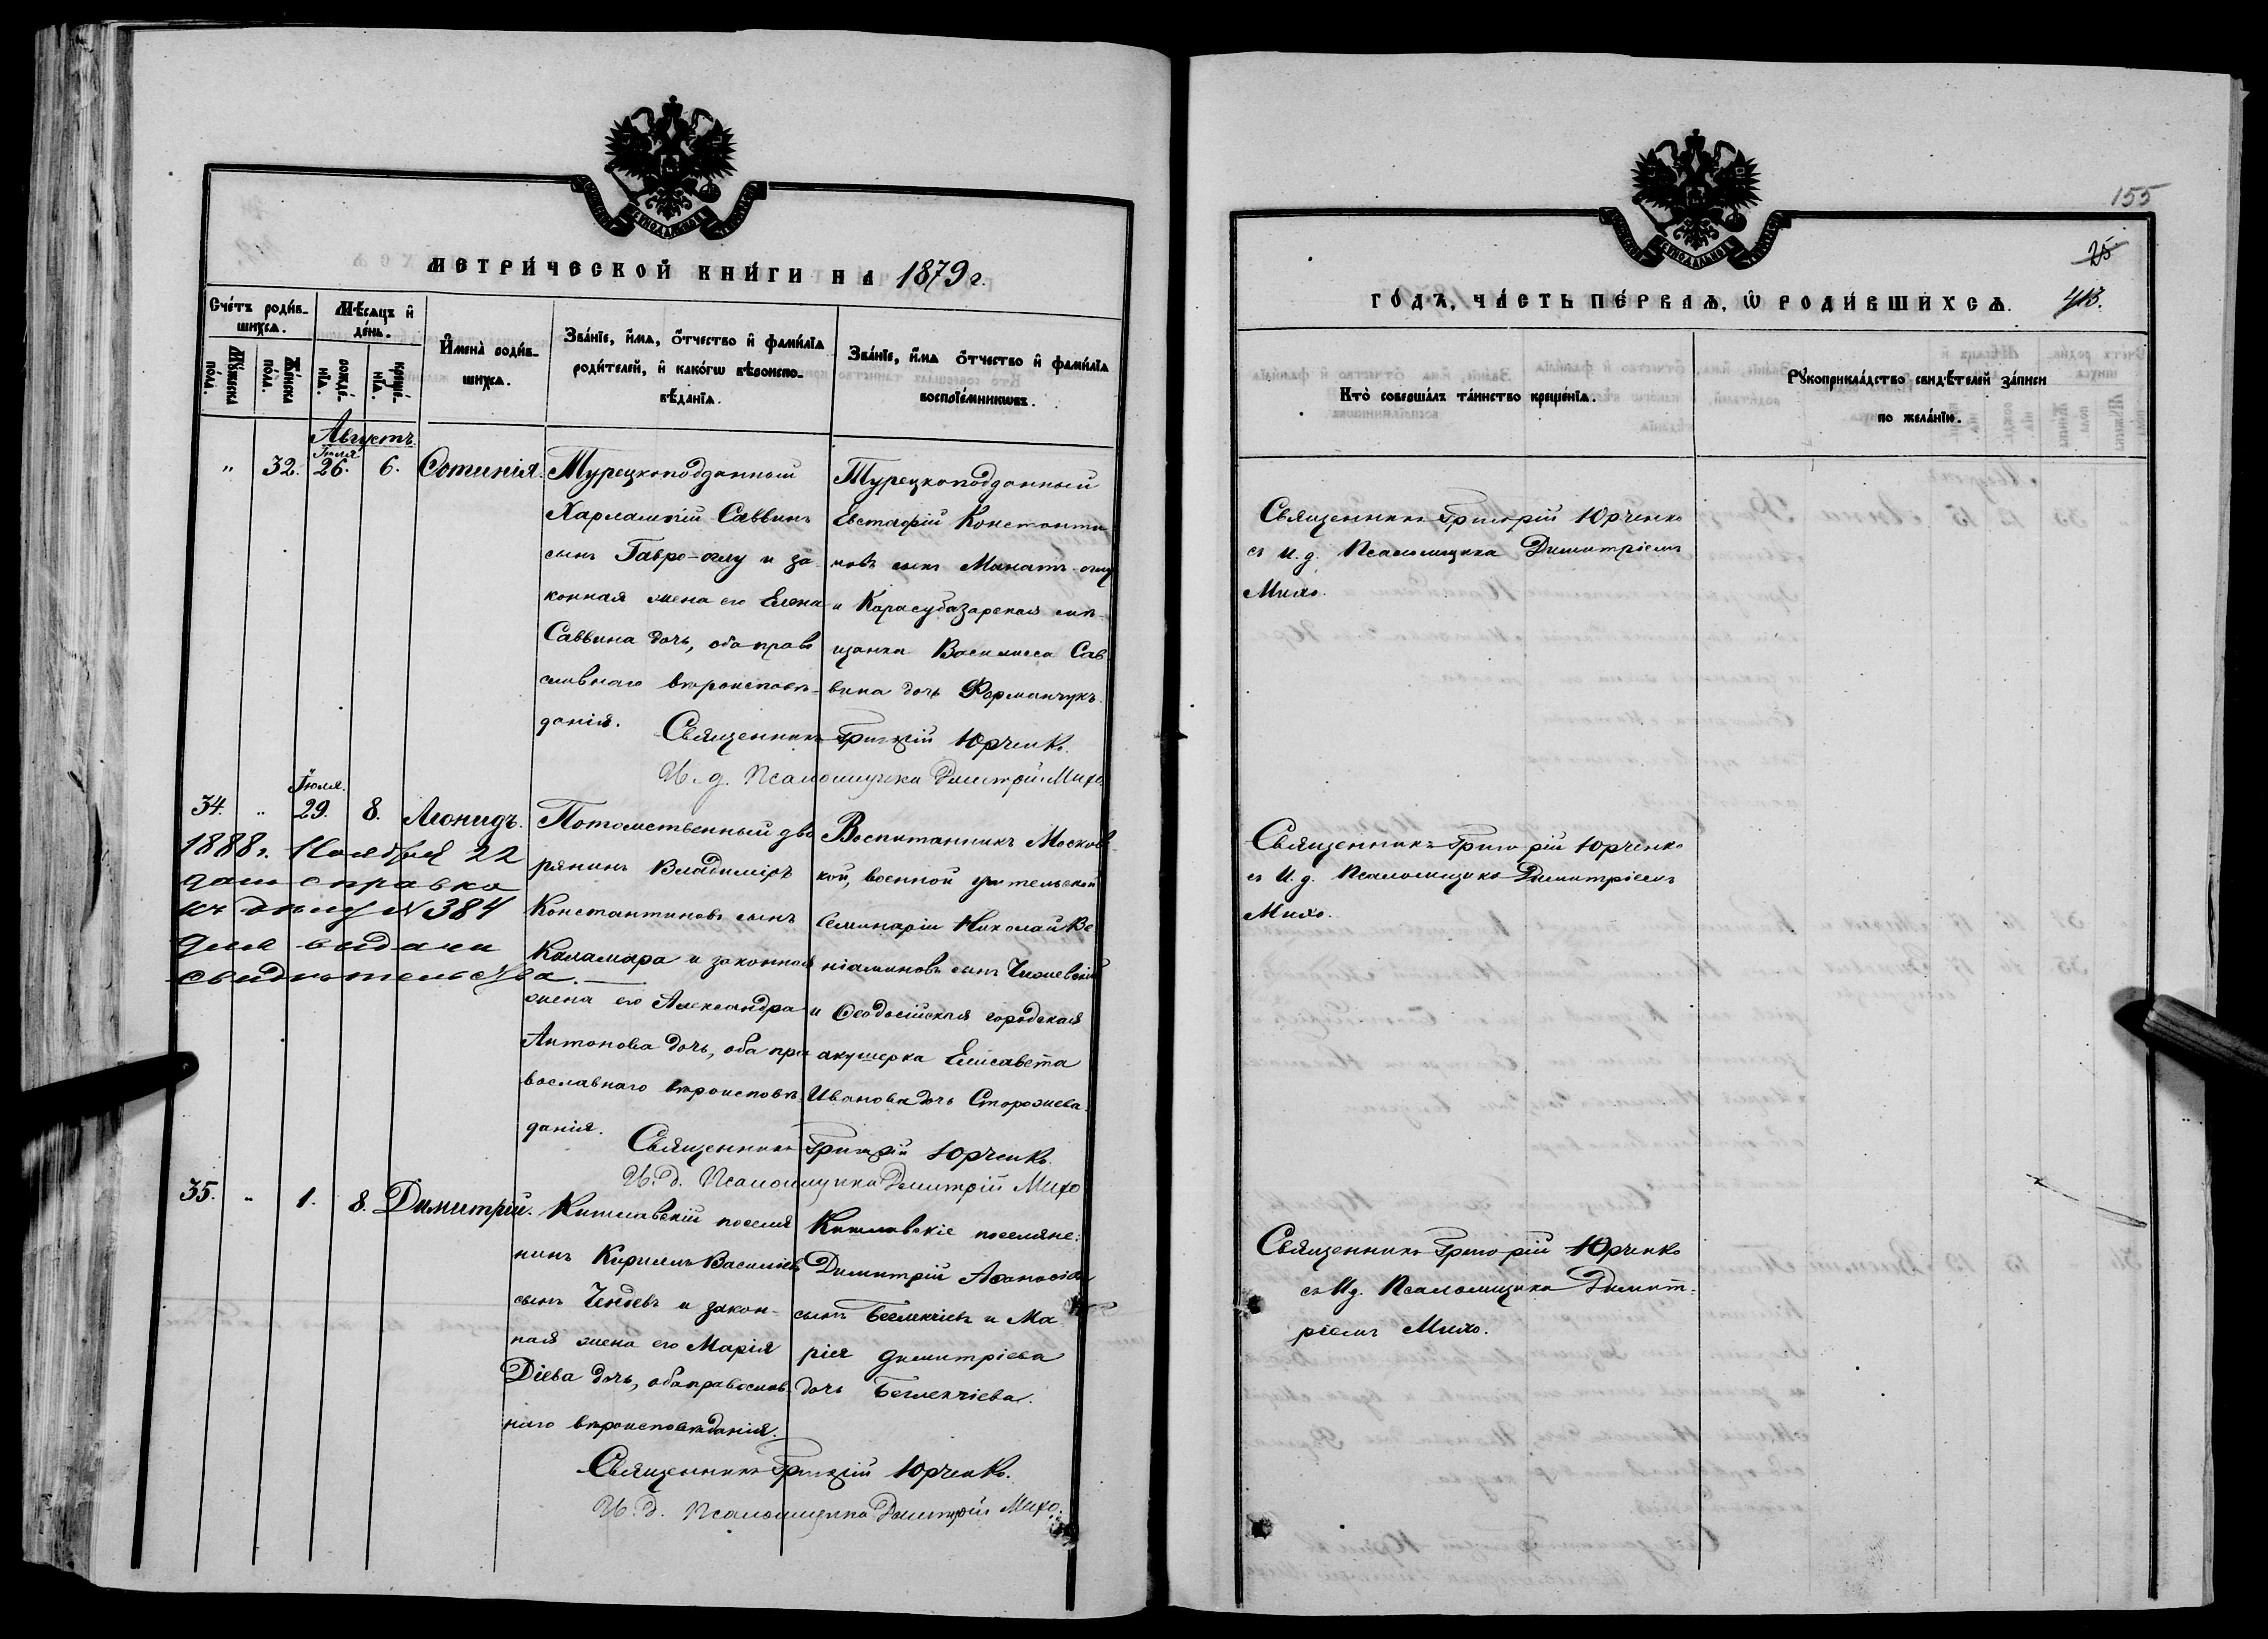 МЕТРИ́ЧЕСКОЙ КНИ́ГИ НА 1879 г.
Сче́тъ роди́в-
шихсѧ.
Мѣ́сѧцъ и҆
де́нь.
Мꙋ́жеска
по́ла.
Же́нска
по́ла.
рожде́-
нїѧ.
креще́-
нїѧ.
И҆мена̀ роди́в-
шихсѧ.
Зва́нїе, и҆́мѧ, ѻ҆́тчество и҆ фами́лїѧ
роди́телей, и҆ како́гѡ вѣроиспо-
вѣ́данїѧ.
Зва́нїе, и҆́мѧ ѻ҆́тчество и҆ фами́лїѧ
воспрїе́мникѡвъ.
Августъ.
" 32. Іюля 26. 6. Фотинія.
Турецкоподданный
Харлампій Саввинъ
сынъ Гавро-оглу и за-
конная жена его Елена
Саввина дочь, оба право
славнаго вѣроисповѣ-
данія.
Турецкоподданный
Евстафій Константи
новъ сынъ Манатъ-оглу
и Карасубазарская мѣ-
щанка Василисса Сав-
вина дочь Форманчукъ.
Священникъ Григорій Юрченко.
И. д. Псаломщика Димитрій Михо.
34. " Іюля. 29. 8. Леонидъ.
1888 г. Ноября 22
дана справка
къ дѣлу № 384
для выдачи
свидѣтельства.
Потомственный дво
рянинъ Владиміръ
Константиновъ сынъ
Каламара и законная
жена его Александра
Антонова дочь, оба пра
вославнаго вѣроисповѣ-
данія.
Воспитанникъ Московс-
кой, военной учительской
Семинаріи Николай Ве
ніаминовъ сынъ Чижевскій
и Ѳеодосійская городская
акушерка Елисавета
Иванова дочь Сторожева.
Священникъ Григорій Юрченко.
И. д. Псаломщика Димитрій Михо
35. " 1. 8. Димитрій.
Кишлавскій поселя
нинъ Кириллъ Васильевъ
сынъ Чендевъ и закон-
ная жена его Марія
Діева дочь, оба православ-
наго вѣроисповѣданія.
Кишлавскіе поселяне:
Димитрій Аѳанасіевъ
сынъ Бегмекчіевъ и Ма
рія Димитріева
дочь Бегмекчіева.
Священникъ Григорій Юрченко.
И. д. Псаломщика Димитрій Михо.
155
25
413.
ГО́ДЪ, ЧА́СТЬ ПЕ́РВАѦ, Ѡ҆ РОДИ́ВШИХСѦ.
Кто̀ соверша́лъ та́инство креще́нїѧ.
Рꙋкоприкла́дство свидѣ́телей за́писи
по жела́нїю.
Священникъ Григорій Юрченко
съ И. д. Псаломщика Димитріемъ
Михо.
Священникъ Григорій Юрченко
съ И. д. Псаломщика Димитріемъ
Михо.
Священникъ Григорій Юрченко
съ И д. Псаломщика Димит-
ріемъ Михо.